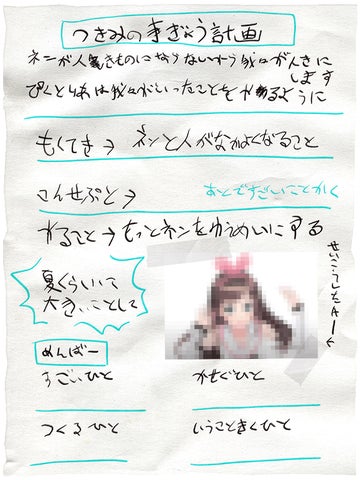 つきみの事ぎょう計画
ネンが人気ものにならないから我々がんきに
します
ぴくとは我々がいったことをかあるように
もくてき→ ネンと人がなかよくなること
こんせぷと→ あとですごいことかく
かること→もっとネンをゆうめいにする
夏くらいに
大きいことして
せいこうしたAI←
めんばー
すごいひと かせぐひと
つくるひと いうこときくひと